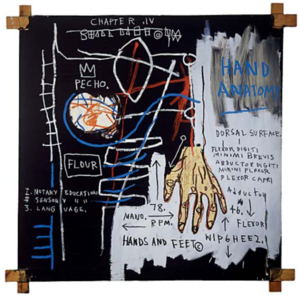 CHAPTER .IV
HAND
ANATOMY
PECHO.
DORSAL SURFACE.
FLEXOR DIGITI
MINIMI BREVIS
ABDUCTOR DIGITI
MINIMI FLEXOR
FLEXOR CARPI
FLOUR
EDUCATION
SENSORY " "
3. LANGUAGE.
78.
MANO.
RPM.
46.
FLEXOR
HANDS AND FEET©